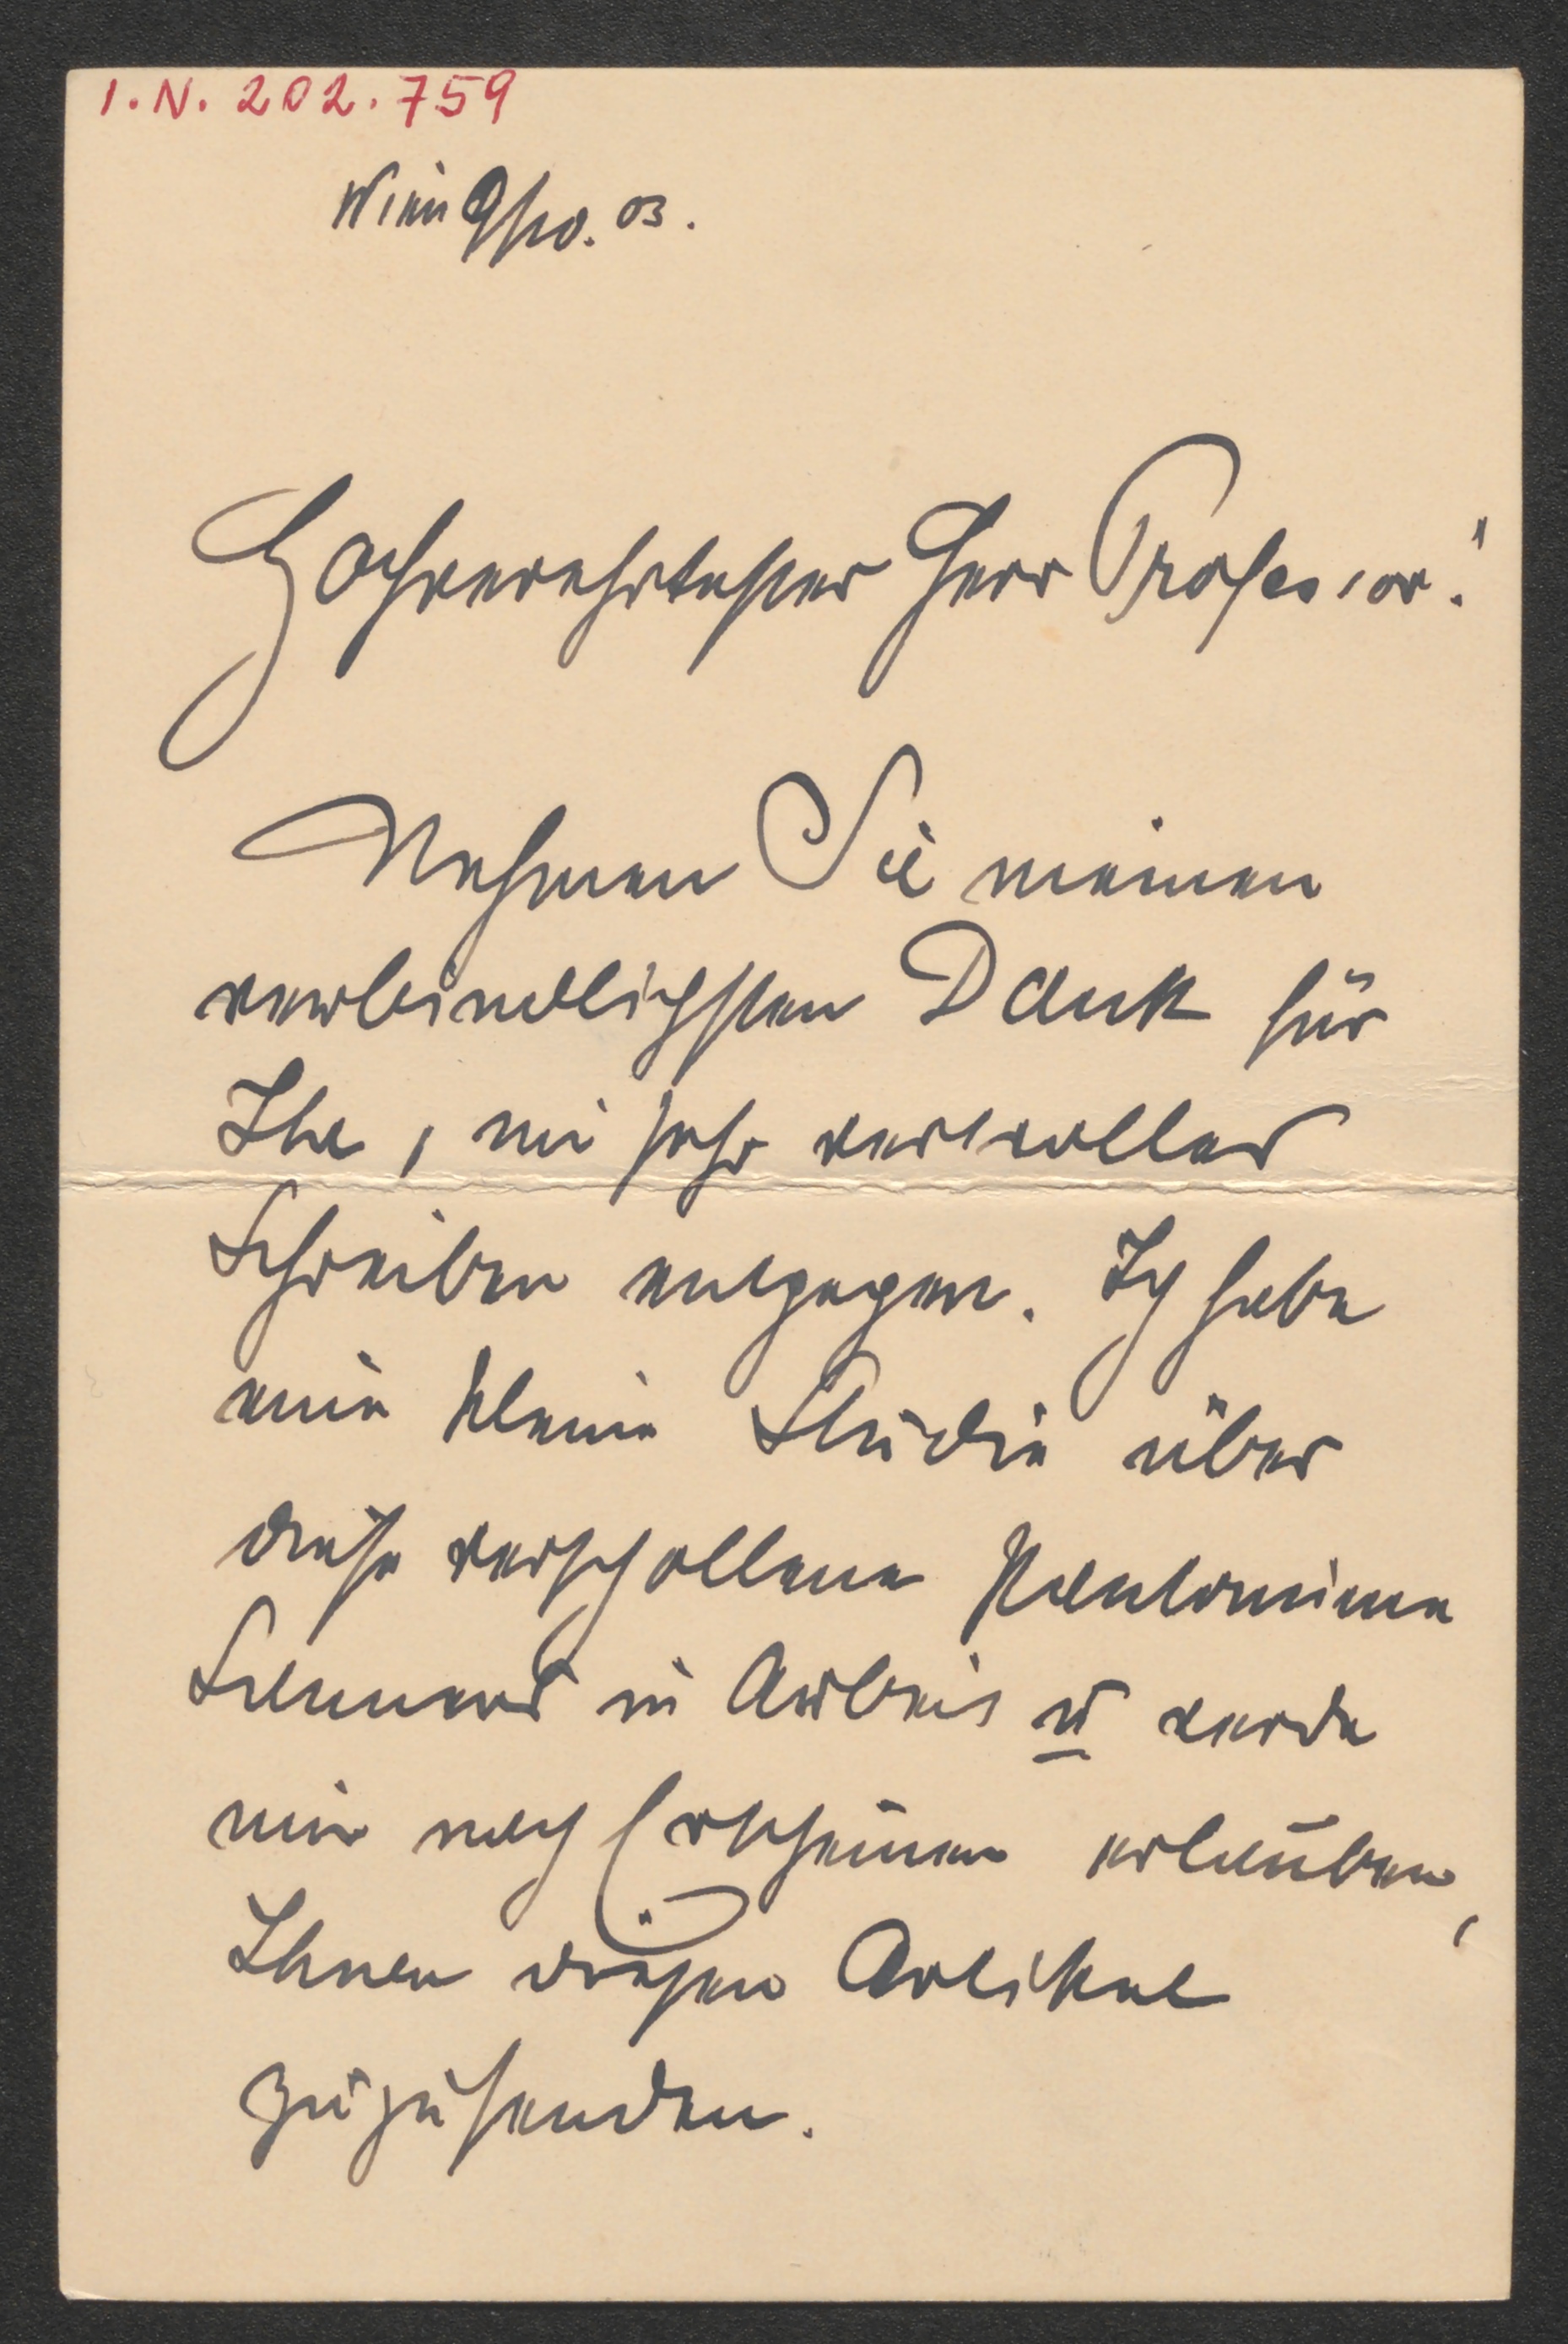 I.N. 202.759
Wien 9/10. 03.
Hochverehrtester Herr Professor!
Nehmen Sie meinen
verbindlichsten Dank für
Ihr, mir sehr wertvolles
Schreiben entgegen. Ich habe
eine kleine Studie über
diese verschollene Pantomime
Lanners in Arbeit u werde
mir nach Erscheinen erlauben,
Ihnen diesen Artikel
zuzusenden.